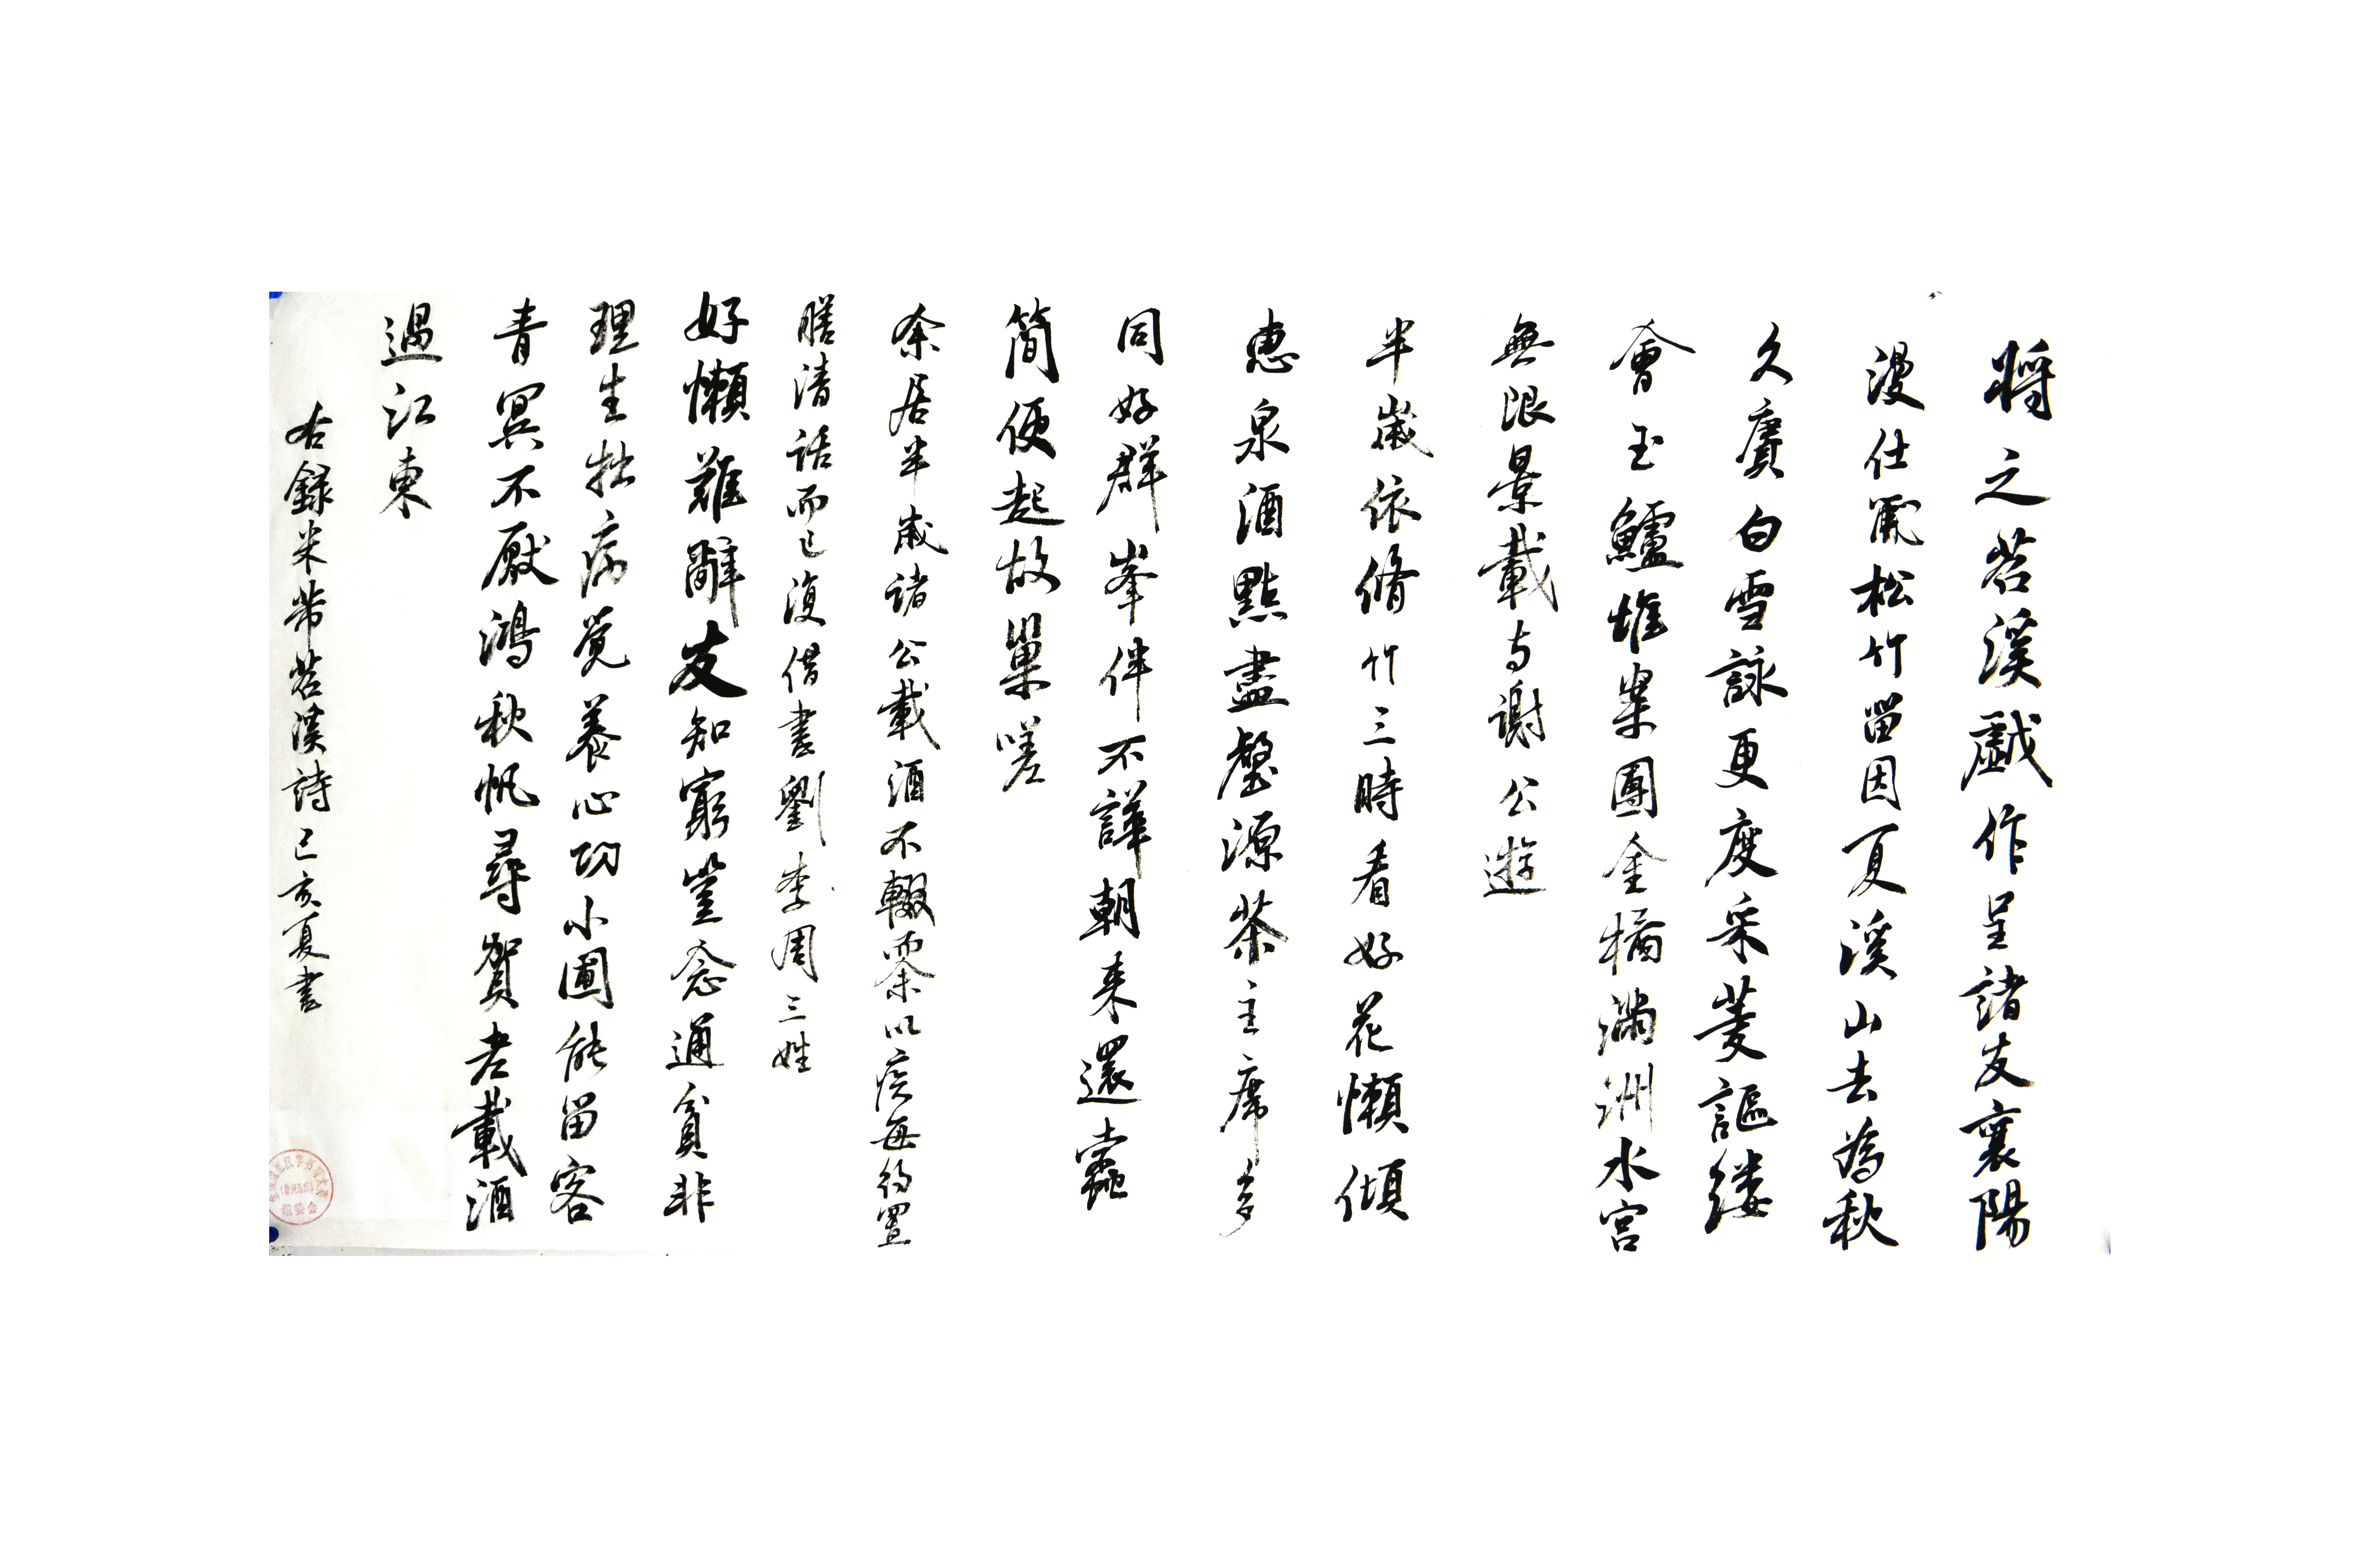 將之苕溪戲作呈諸友襄陽
漫仕鳳松竹留因夏溪山去為秋
久賡白雪詠更度采菱謳縷
會玉鱸堆案團金橘滿洲水宮
無限景載與謝公遊
半歲依脩竹三時看好花懶傾
惠泉酒點盡壑源茶主席多
同好群峯伴不譁朝来還蠹
簡便起故巢嗟
余居半歲諸公載酒不輟而余以疾每約置
膳清話而已復借書劉李周三姓
好懶難辭友知窮豈念通貧非
理生拙病覺養心功小圃能留客
青冥不厭鴻秋帆尋賀老載酒
過江東
右録米芾苕溪詩己亥夏書